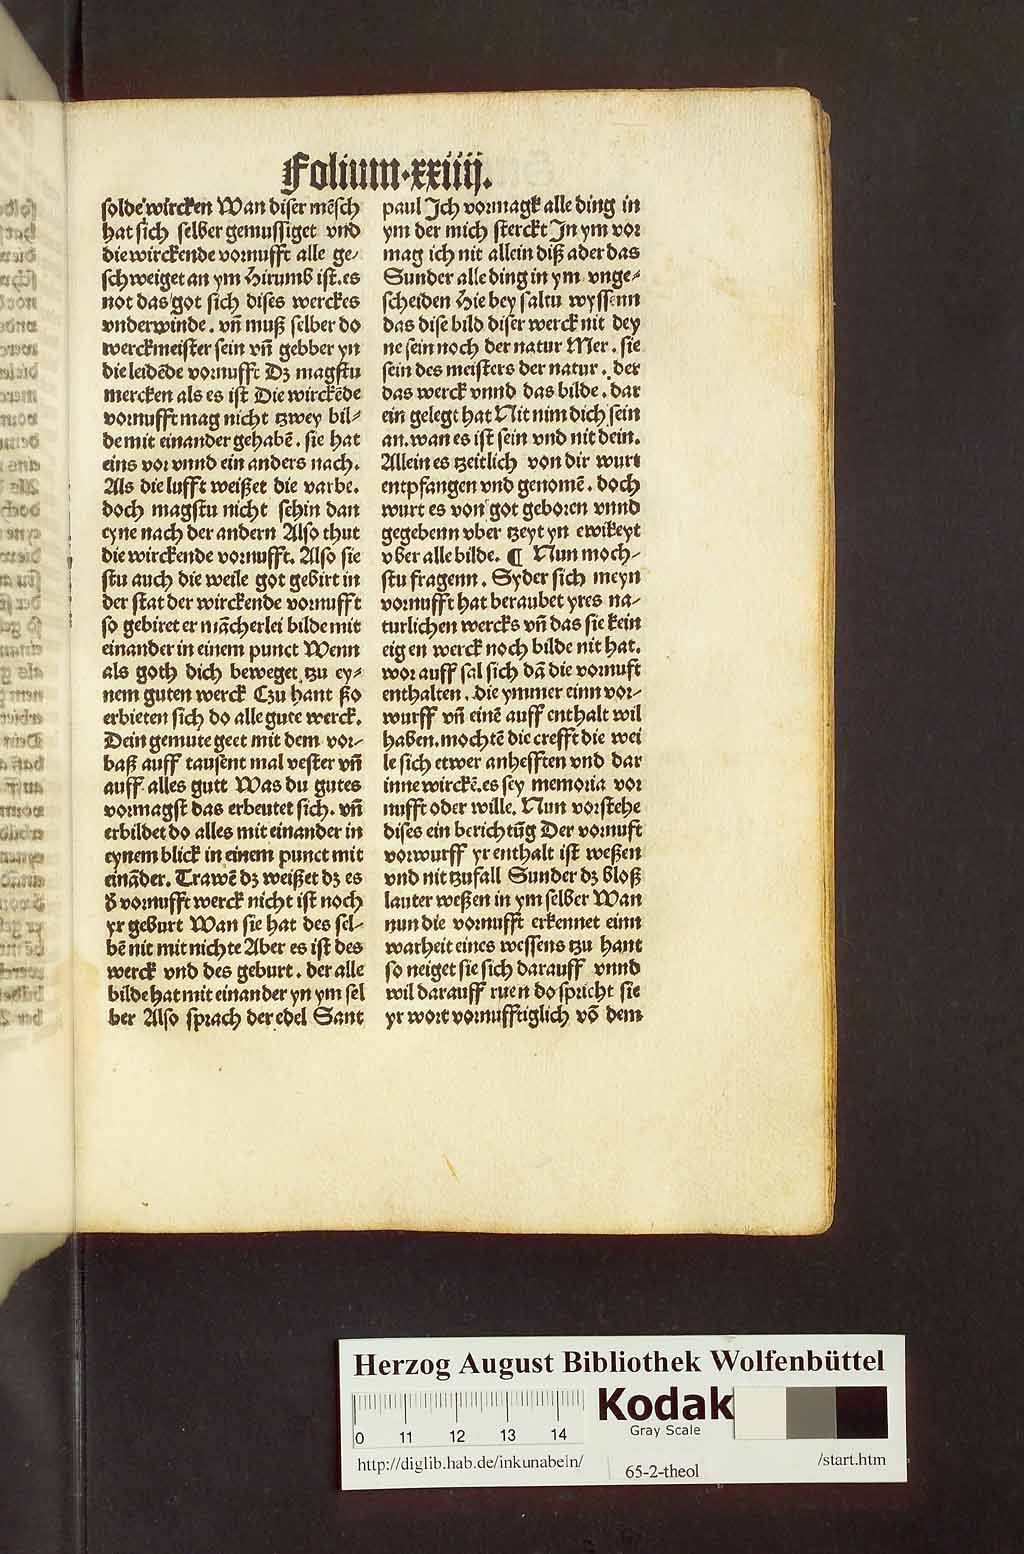 Folium·xxiiij.
solde wircken Wan diser mēsch
hat sich selber gemussiget vnd
die wirckende vornufft alle ge⸗
schweiget an ym Hirumb ist. es
not das got sich dises werckes
vnderwinde. vn̄ muß selber do
werckmeister sein vn̄ gebber yn
die leidēde vornufft Dz magstu
mercken als es ist Die wirckēde
vornufft mag nicht tzwey bil⸗
de mit einander gehabē. sie hat
eins vor vnnd ein anders nach.
Als die lufft weißet die varbe.
doch magstu nicht sehin dan
eyne nach der andern Also thut
die wirckende vornufft. Also sie
stu auch die weile got gebirt in
der stat der wirckende vornufft
so gebiret er mācherlei bilde mit
einander in einem punct Wenn
als goth dich beweget tzu ey⸗
nem guten werck Czu hant ßo
erbieten sich do alle gute werck.
Dein gemute geet mit dem vor⸗
baß auff tausent mal vester vn̄
auff alles gutt Was du gutes
vormagst das erbeutet sich. vn̄
erbildet do alles mit einander in
eynem blick in einem punct mit
eināder. Trawē dz weißet dz es
d̄ vornufft werck nicht ist noch
yr geburt Wan sie hat des sel⸗
bē nit mit nichte Aber es ist des
werck vnd des geburt. der alle
bilde hat mit einander yn ym sel
ber Also sprach der edel Sant
paul Jch vormagk alle ding in
ym der mich sterckt Jn ym vor
mag ich nit allein diß ader das
Sunder alle ding in ym vnge⸗
scheiden Hie bey saltu wyssenn
das dise bild diser werck nit dey
ne sein noch der natur Mer. sie
sein des meisters der natur. der
das werck vnnd das bilde. dar
ein gelegt hat Nit nim dich sein
an. wan es ist sein vnd nit dein.
Allein es tzeitlich von dir wurt
entpfangen vnd genomē. doch
wurt es von got geboren vnnd
gegebenn vber tzeyt yn ewikeyt
vber alle bilde. ¶ Nun moch⸗
stu fragenn. Syder sich meyn
vornufft hat beraubet yres na⸗
turlichen wercks vn̄ das sie kein
eigen werck noch bilde nit hat.
wor auff sal sich dā die vornuft
enthalten. die ymmer einn vor⸗
wurff vn̄ einē auff enthalt wil
haben. mochtē die crefft die wei
le sich etwer anhefften vnd dar
inne wirckē. es sey memoria vor
nufft oder wille. Nun vorstehe
dises ein berichtūg Der vornuft
vorwurff yr enthalt ist weßen
vnd nit tzufall Sunder dz bloß
lauter weßen in ym selber Wan
nun die vornufft erkennet einn
warheit eines wessens tzu hant
so neiget sie sich darauff vnnd
wil darauff ruen do spricht sie
yr wort vornufftiglich vō dem
Herzog August Bibliothek Wolfenbüttel
Kodak
Gray Scale
0 11 12 13 14
http://diglib.hab.de/inkunabeln/
65-2-theol
/start.htm